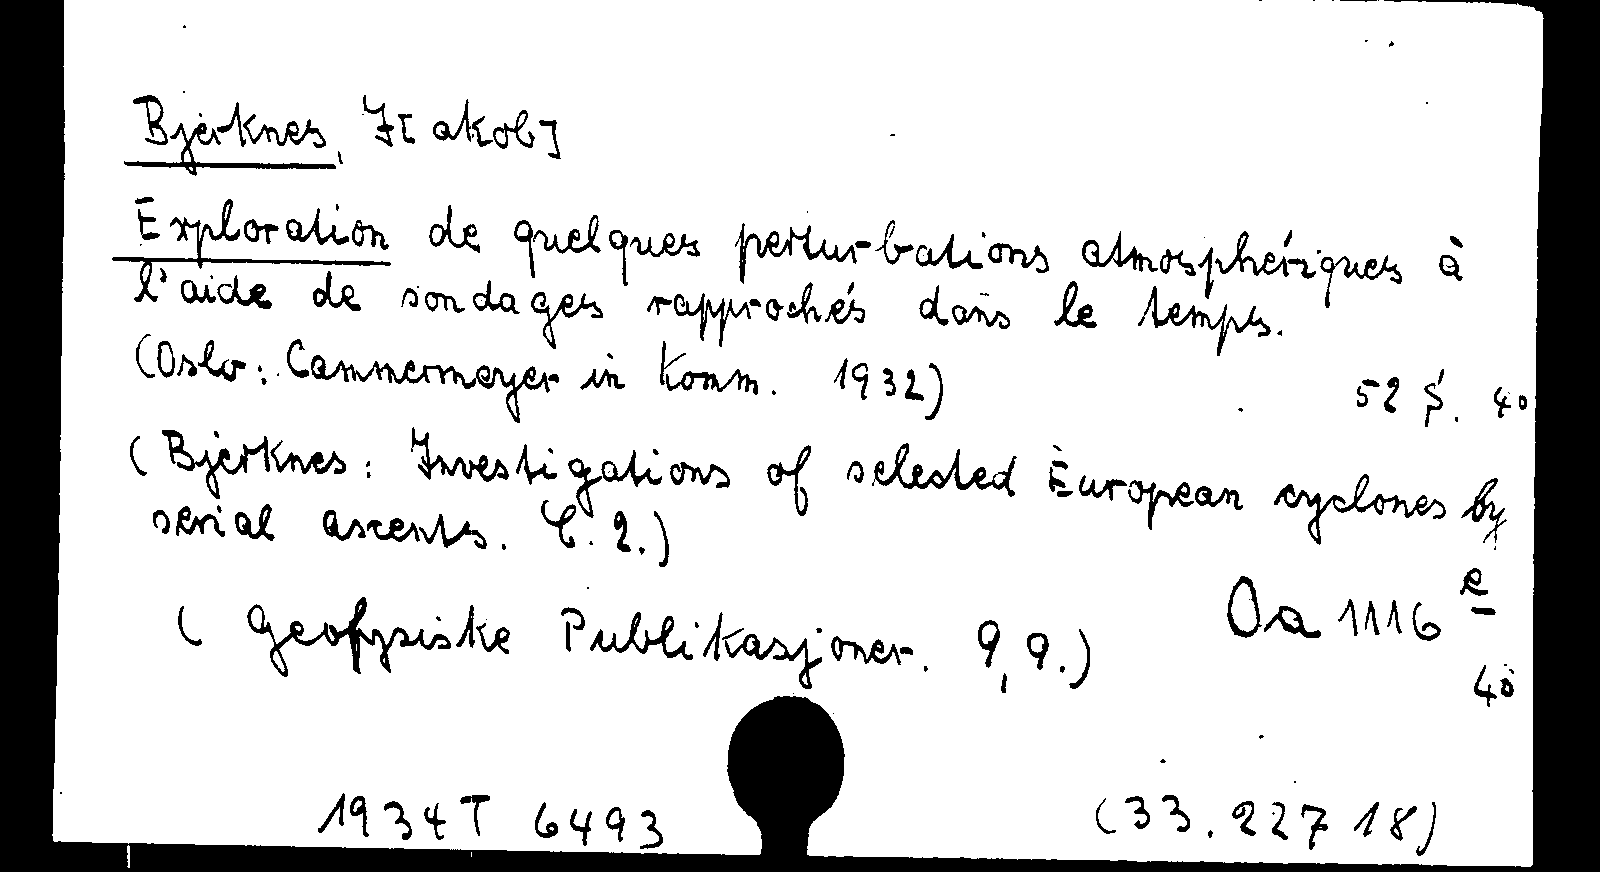 Bjerknes, J[akob]
Exploration de quelques perturbations atmosphériques à
l'aide de sondages rapprochés dans le temps.
(Oslo: Cammermeyer in Komm. 1932) 52 S. 4o
(Bjerknes: Investigations of selected European cyclones by
serial ascents. C. 2.)
(Geofysiske Publikasjoner. 9,9.) Oa 1116 e
4o
1934 T 6493 (33. 227 18)